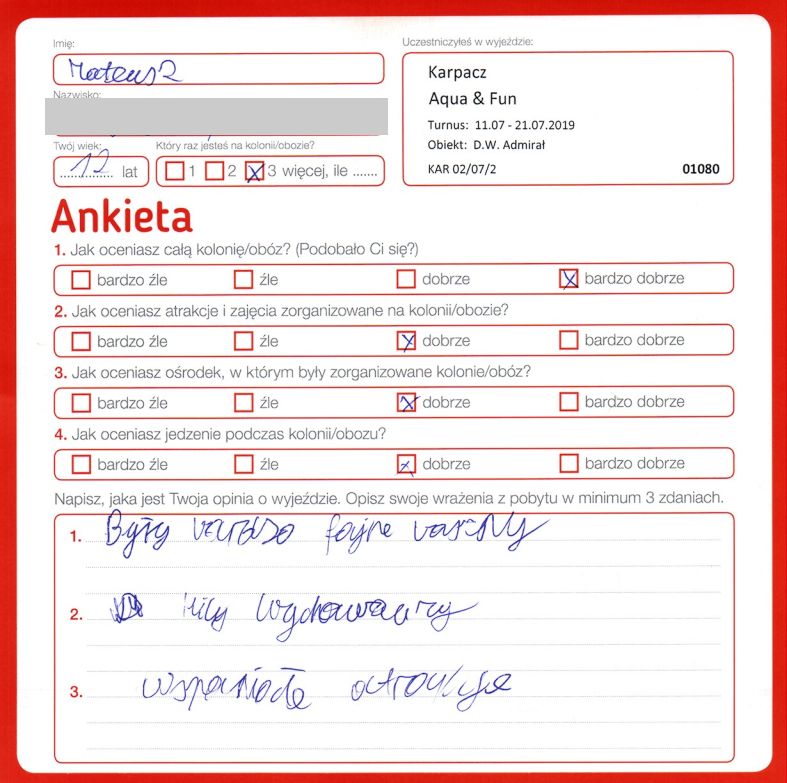 Imię:
Mateusz
Nazwisko:
Twój wiek:
12 lat
Który raz jesteś na kolonii/obozie?
1 2 3 więcej, ile .......
Uczestniczyłeś w wyjeździe:
Karpacz
Aqua & Fun
Turnus: 11.07 - 21.07.2019
Obiekt: D.W. Admirał
KAR 02/07/2 01080
Ankieta
1. Jak oceniasz całą kolonię/obóz? (Podobało Ci się?)
bardzo źle źle dobrze bardzo dobrze
2. Jak oceniasz atrakcje i zajęcia zorganizowane na kolonii/obozie?
bardzo źle źle dobrze bardzo dobrze
3. Jak oceniasz ośrodek, w którym były zorganizowane kolonie/obóz?
bardzo źle źle dobrze bardzo dobrze
4. Jak oceniasz jedzenie podczas kolonii/obozu?
bardzo źle źle dobrze bardzo dobrze
Napisz, jaka jest Twoja opinia o wyjeździe. Opisz swoje wrażenia z pobytu w minimum 3 zdaniach.
1. Były bardzo fajne
2.
3. wspaniałe atrakcje